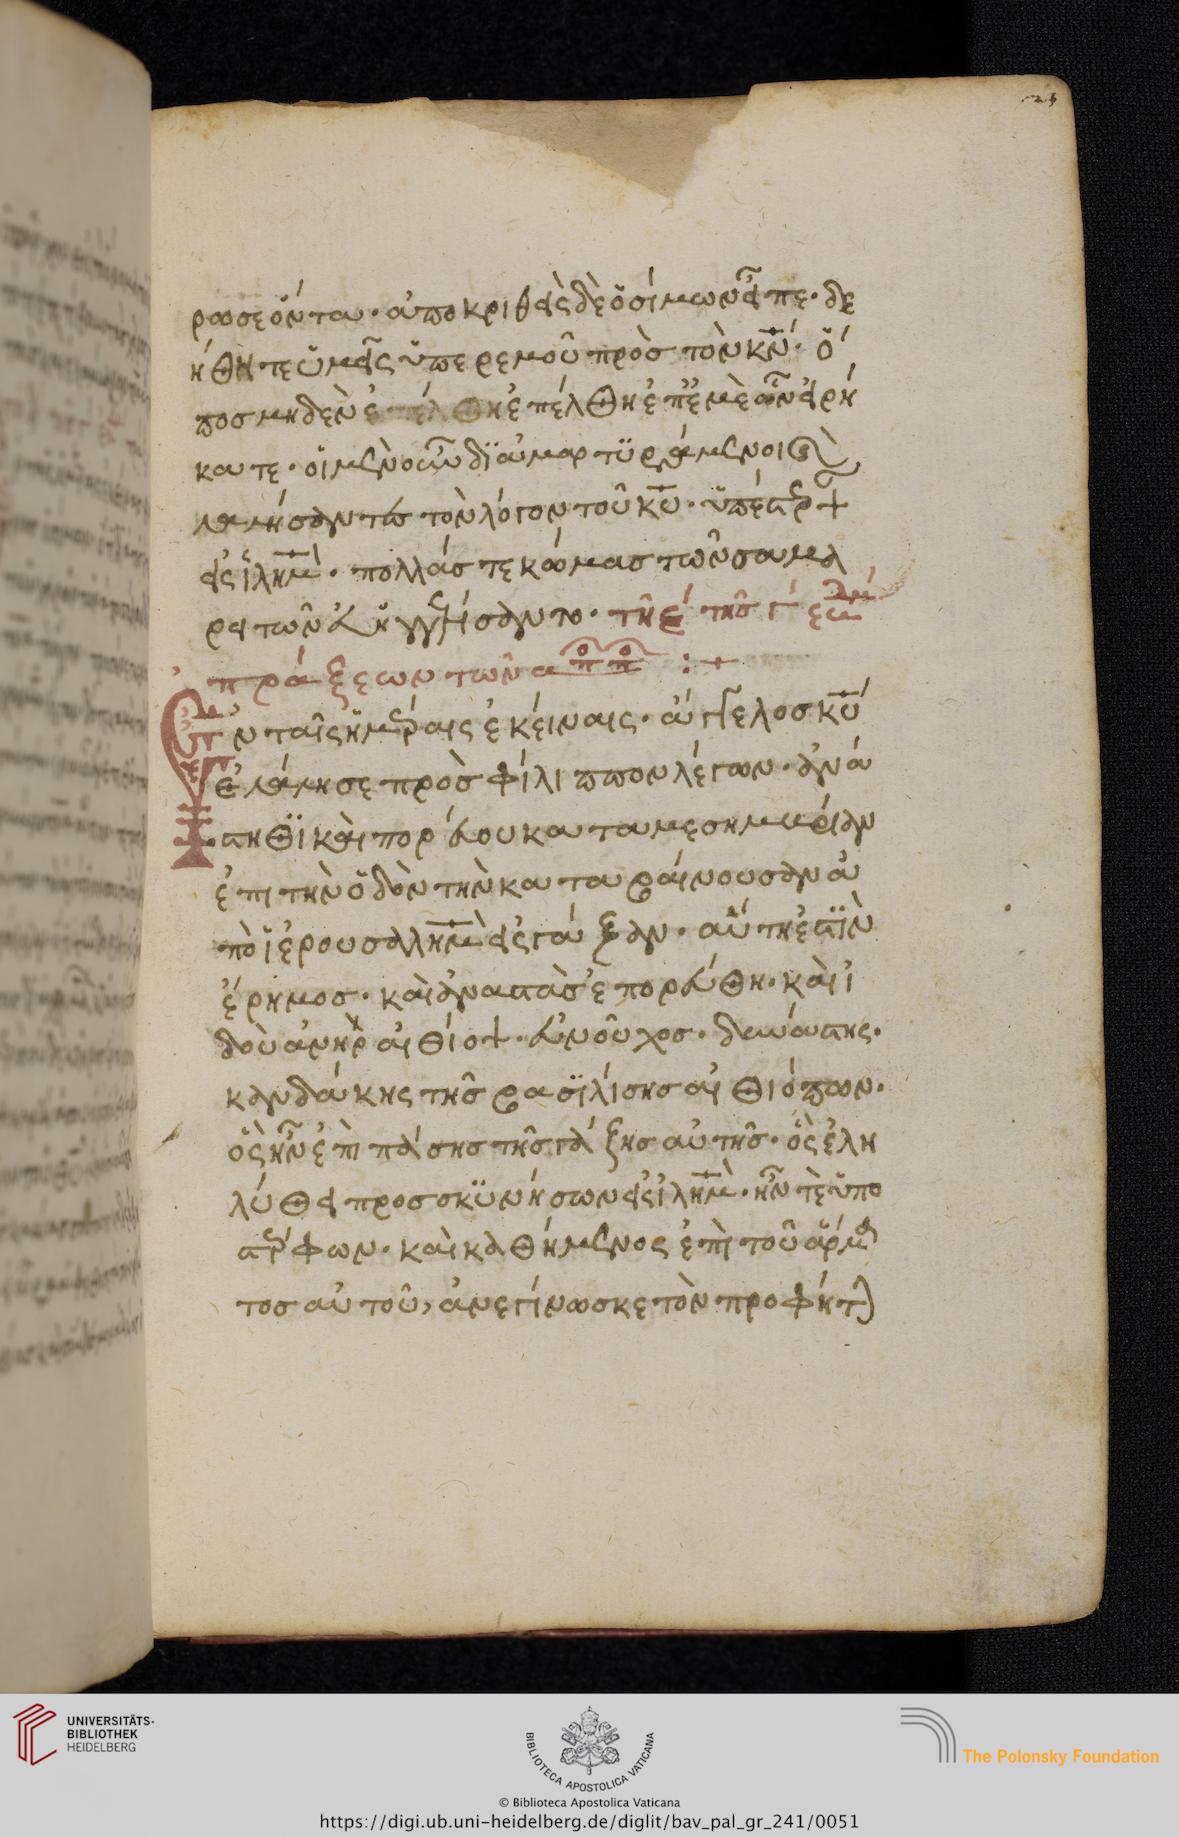 23
ρῶ σε ὄντα · ἀποκριθεὶς δὲ ὁ σίμων εἶπε · δε
ήθητε ὑμεῖς ὑπερ ἐμοῦ πρὸσ τὸν κ̅ν̅ · ὅ
ποσ μηδὲν ἐπέλθη ἐπέλθη ἐπ ἐμὲ ὧν εἰρή
κατε · οἱ μὲν οὖν διαμαρτϋράμενοι καὶ
λαλήσαντεσ τὸν λόγον τοῦ κ̅υ̅ · ὑπέστρεψαν
εἰς ἱλη̅μ̅ · πολλάσ τε κώμασ τῶν σαμα
ρειτῶν εὐηγγελίσαντο · τῆ ε τῆσ γ ἑβδ
πράξεων τῶν αποστόλων :+
Ἐν ταῖς ἡμέραις ἐκείναις · ἄγγελοσ κ̅υ̅
ἐλάλησε πρὸσ φίλιππον λέγων · ἀνά
στηθϊ καὶ πορεύου κατα μεσημβρίαν
ἐπι τὴν ὁδὸν τὴν καταβαίνουσαν ἀ
πὸ ἱερουσαλλη̅μ̅ εἰς γάζαν · αὕτη ἐστϊν
ἔρημοσ · καὶ ἀναστὰσ ἐπορεύθη · καὶ ἰ
δοὺ ἀνὴρ αἰθίοψ · εὐνοῦχοσ · δυνάστης ·
κανδάκης τῆσ βασϊλίσησ αἰθιόπων ·
ὃς ἦν ἐπὶ πάσησ τῆσ γάζησ αὐτῆσ · ὃς ἐλη
λύθει προσσκϋνήσων εἰς ἱλη̅μ̅ · ἦν τὲ ὑπο
στρέφων · καὶ καθήμενος ἐπὶ τοῦ ἅρμα
τοσ αὐτοῦ, ἀνεγίνωσκε τὸν προφήτην
UNIVERSITÄTS-
BIBLIOTHEK
HEIDELBERG
BIBLIOTECA APOSTOLICA VATICANA
The Polonsky Foundation
© Biblioteca Apostolica Vaticana
https://digi.ub.uni-heidelberg.de/diglit/bav_pal_gr_241/0051